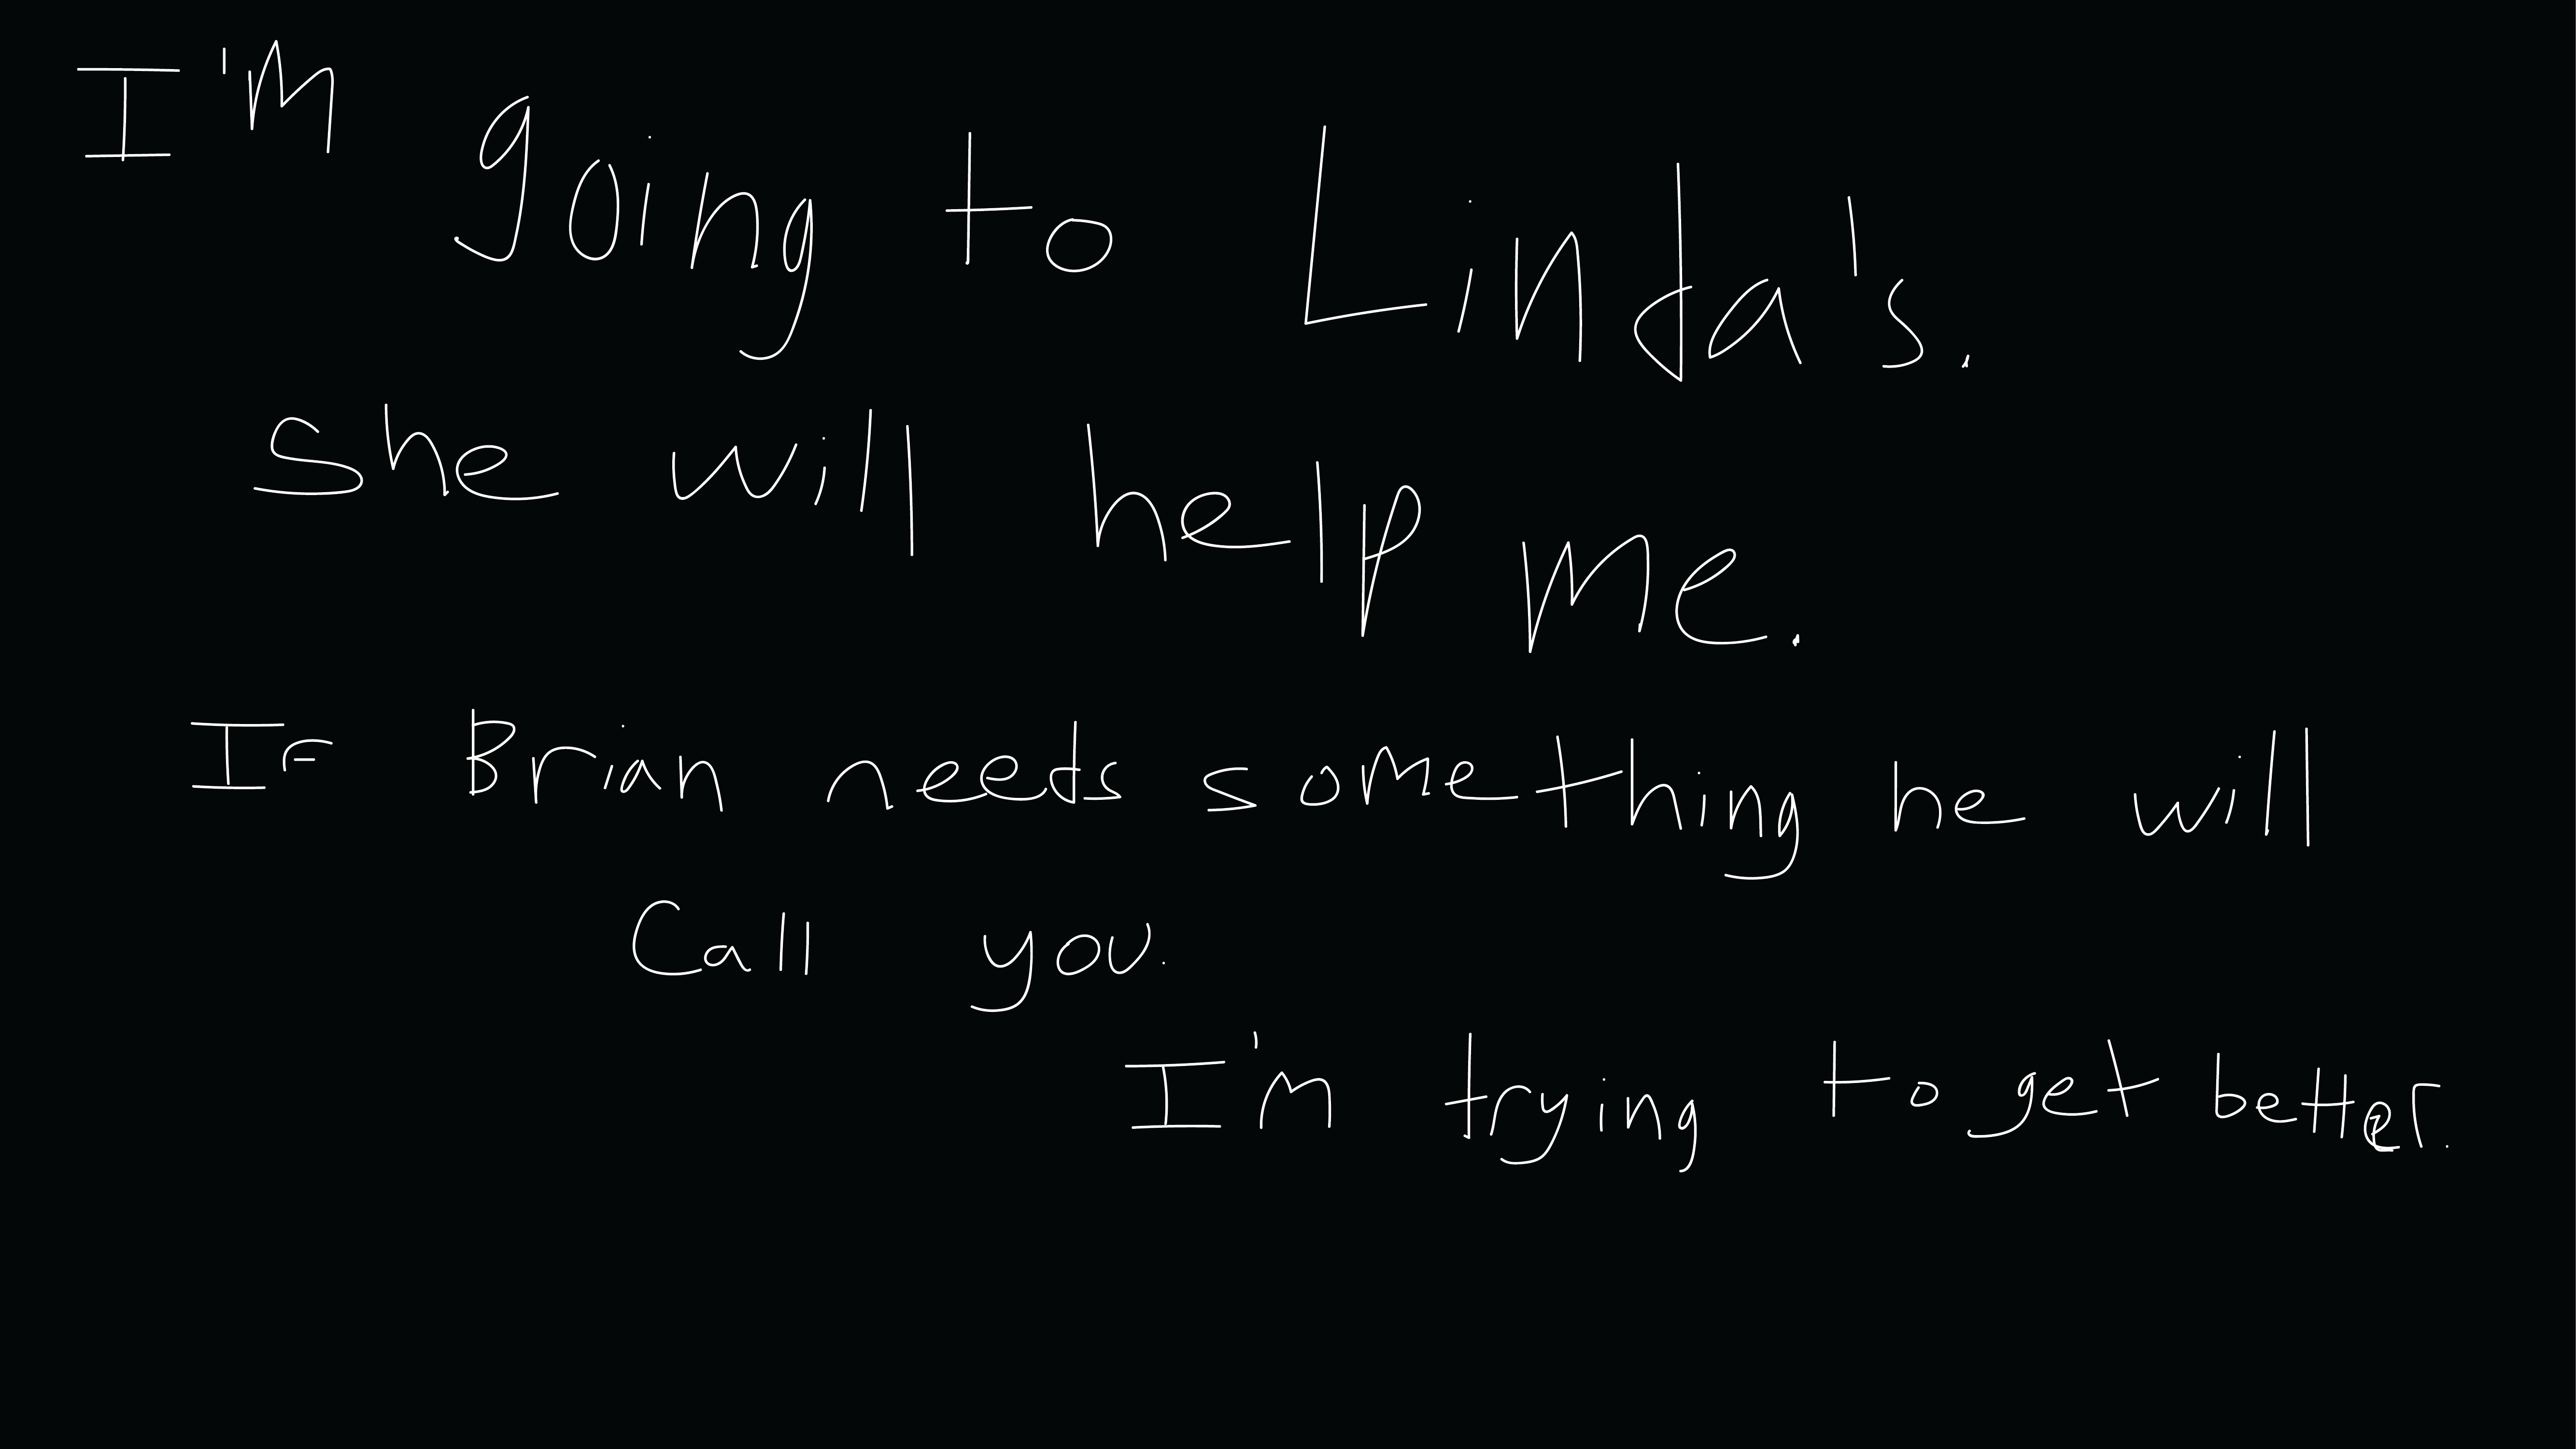 I'm going to Linda's.
She will help me.
If Brian needs something he will
Call you.
I'm trying to get better.